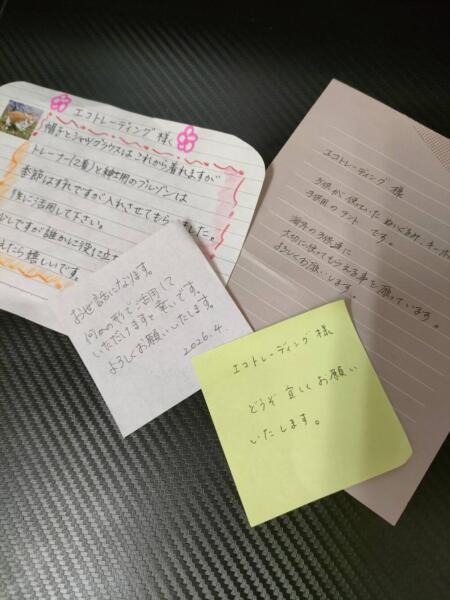 エコトレーディング様
帽子とシャツブラウスはこれから着れますが
トレーナー(2着)と紳士用のブルゾンは
季節はずれですが入れさせてもら ました。
に活用して下さい。
少しですが誰かに役に立
えたら嬉しいです。
エコトレーディング 様
子供が使っていた ぬいぐるみ、キーホ
子供用のテントです。
海外の子供達に
大切に使ってもらえる事を願っています。
よろしくお願いします。
お世話になります。
何かの形で活用して
いただけますと幸いです。
よろしくお願いいたします。
2026.4.
エコトレーディング様
どうぞ宜しくお願い
いたします。